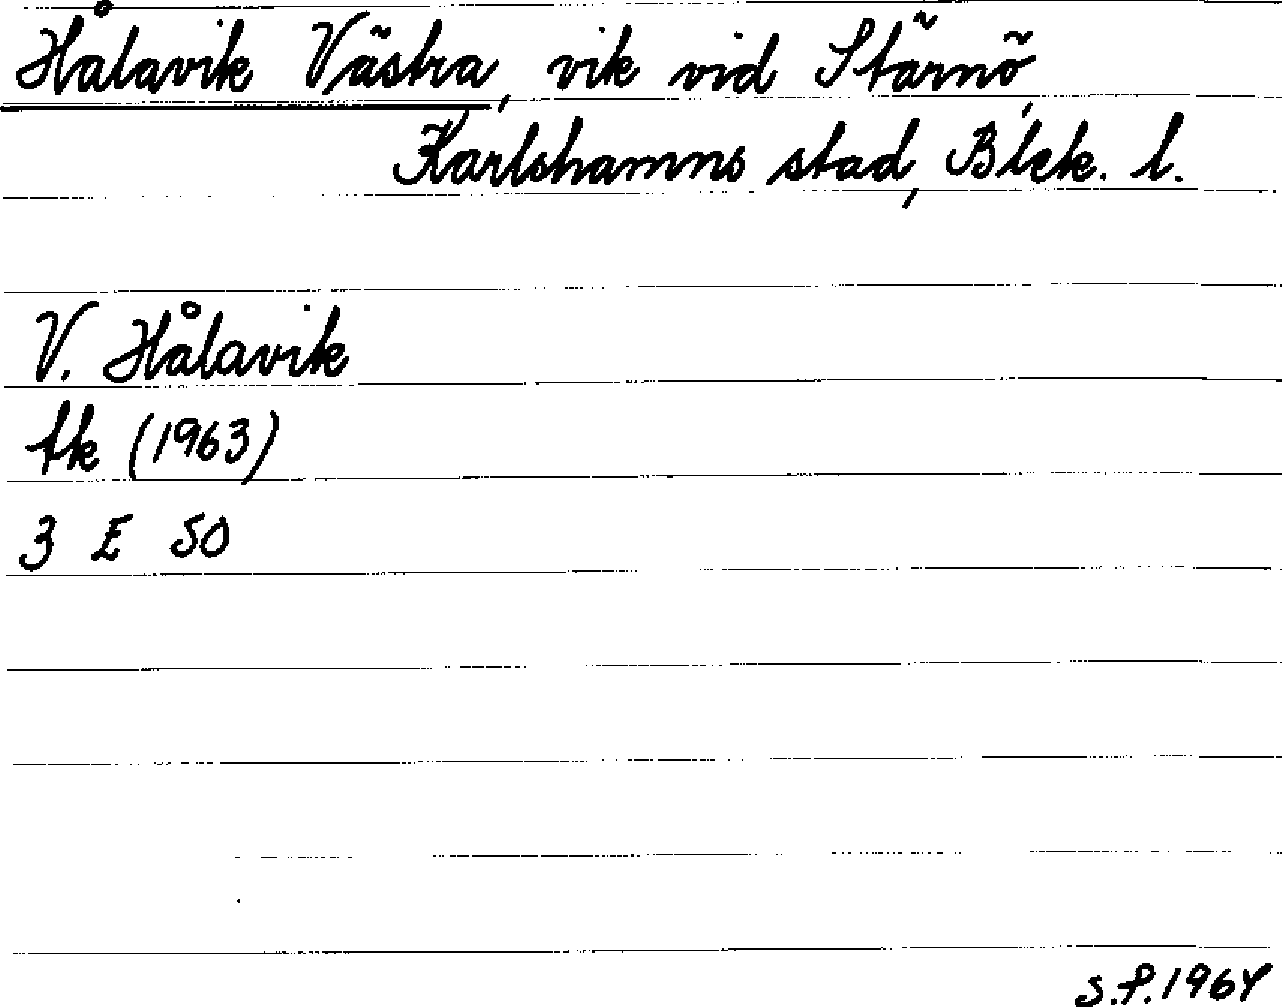 Hålavik Västra, vik vid Stärnö,
Karlshamns stad, Blek. l.
V. Hålavik
tk (1963)
3 E SO
S.P. 1964